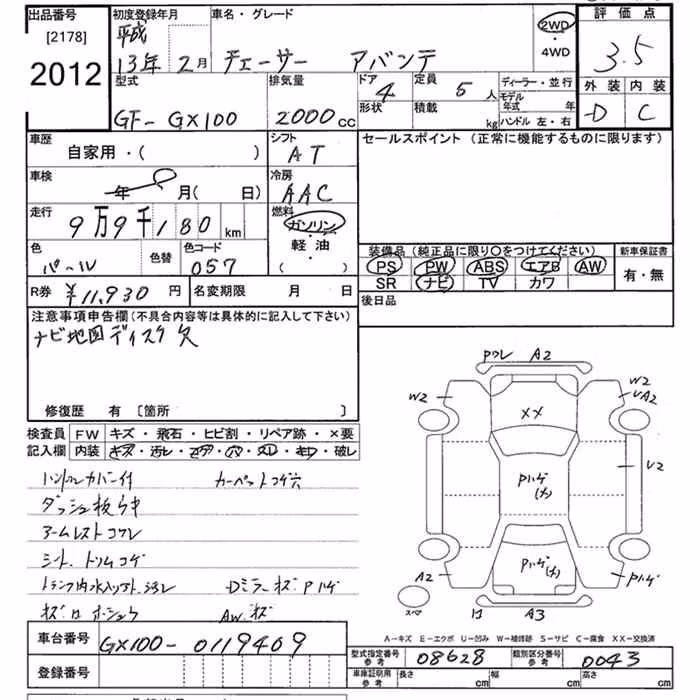 出品番号 初度登録年月 車名・グレード 評価点
[2178] 平成 2WD
2012 13年 2月 チェーサー アバンテ ・4WD 3.5
型式 排気量 ドア 4 定員 5人 ディーラー・並行 外装 内装
GF-GX100 2000cc 形状 積載 kg モデル年式 年 D C
ハンドル 左・右
車歴 シフト セールスポイント (正常に機能するものに限ります)
自家用・( ) AT
車検 冷房
年 月( 日) AAC
走行 燃料
9万9千180km ガソリン
・
軽油
・
( )
色 色替 色コード 装備品 (純正品に限り〇をつけてください) 新車保証書
パール 057 PS PW ABS エアB AW 有・無
SR ナビ TV カワ
R券 ¥11,930 円 名変期限 月 日 後日品
注意事項申告欄 (不具合内容等は具体的に記入して下さい)
ナビ地図ディスク欠
修復歴 有 [箇所 ]
検査員 FW キズ・飛石・ヒビ割・リペア跡・×要
記入欄 内装 キズ・汚レ・コゲ・穴・スレ・キレ・破レ
ハンドルカバー付 カーペットコゲ穴
ダッシュ板
アームレストコワレ
シート、トリムコゲ
Dミラーキズ Pハゲ
AWキズ
ワレ A2
W2 W2
UA2
XX
U2
Pハゲ
Pハゲ
A2 Pハゲ
スペア A3
A-キズ E-エクボ U-凹み W-補修跡 S-サビ C-腐食 XX-交換済
車台番号 GX100-0119409
型式指定番号 参考 08628 類別区分番号 参考 0043
登録番号 車庫証明用 参考 長さ cm 幅 cm 高さ cm